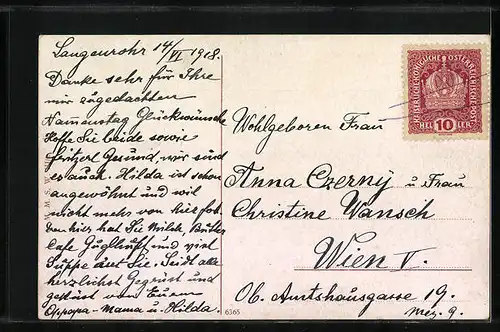 Langenrohr 14/VI 1918.
Danke sehr für Ihre
mir zugedachten
Namenstag Glückwünsche
Hoffe Sie beide sowie
Gesund, wir sind
es auch. Hilda ist schon
angewöhnt und wil
nicht mehr von hier fort
den hier hat Sie Milch, Butter
Cafe Guglhupf und viel
Suppe Sie. Seidt alle
herzlichst Gegrüst und
geküsst von Euern
Oppapa-Mama u. Hilda.
KAISERLICH KÖNIGLICHE ÖSTERREICHISCHE POST
HEL 10 LER
Wohlgeboren Frau
Anna Czerny u Frau
Christine Wansch
Wien V.
Ob. Amtshausgasse 19.
Mez. 9.
6365